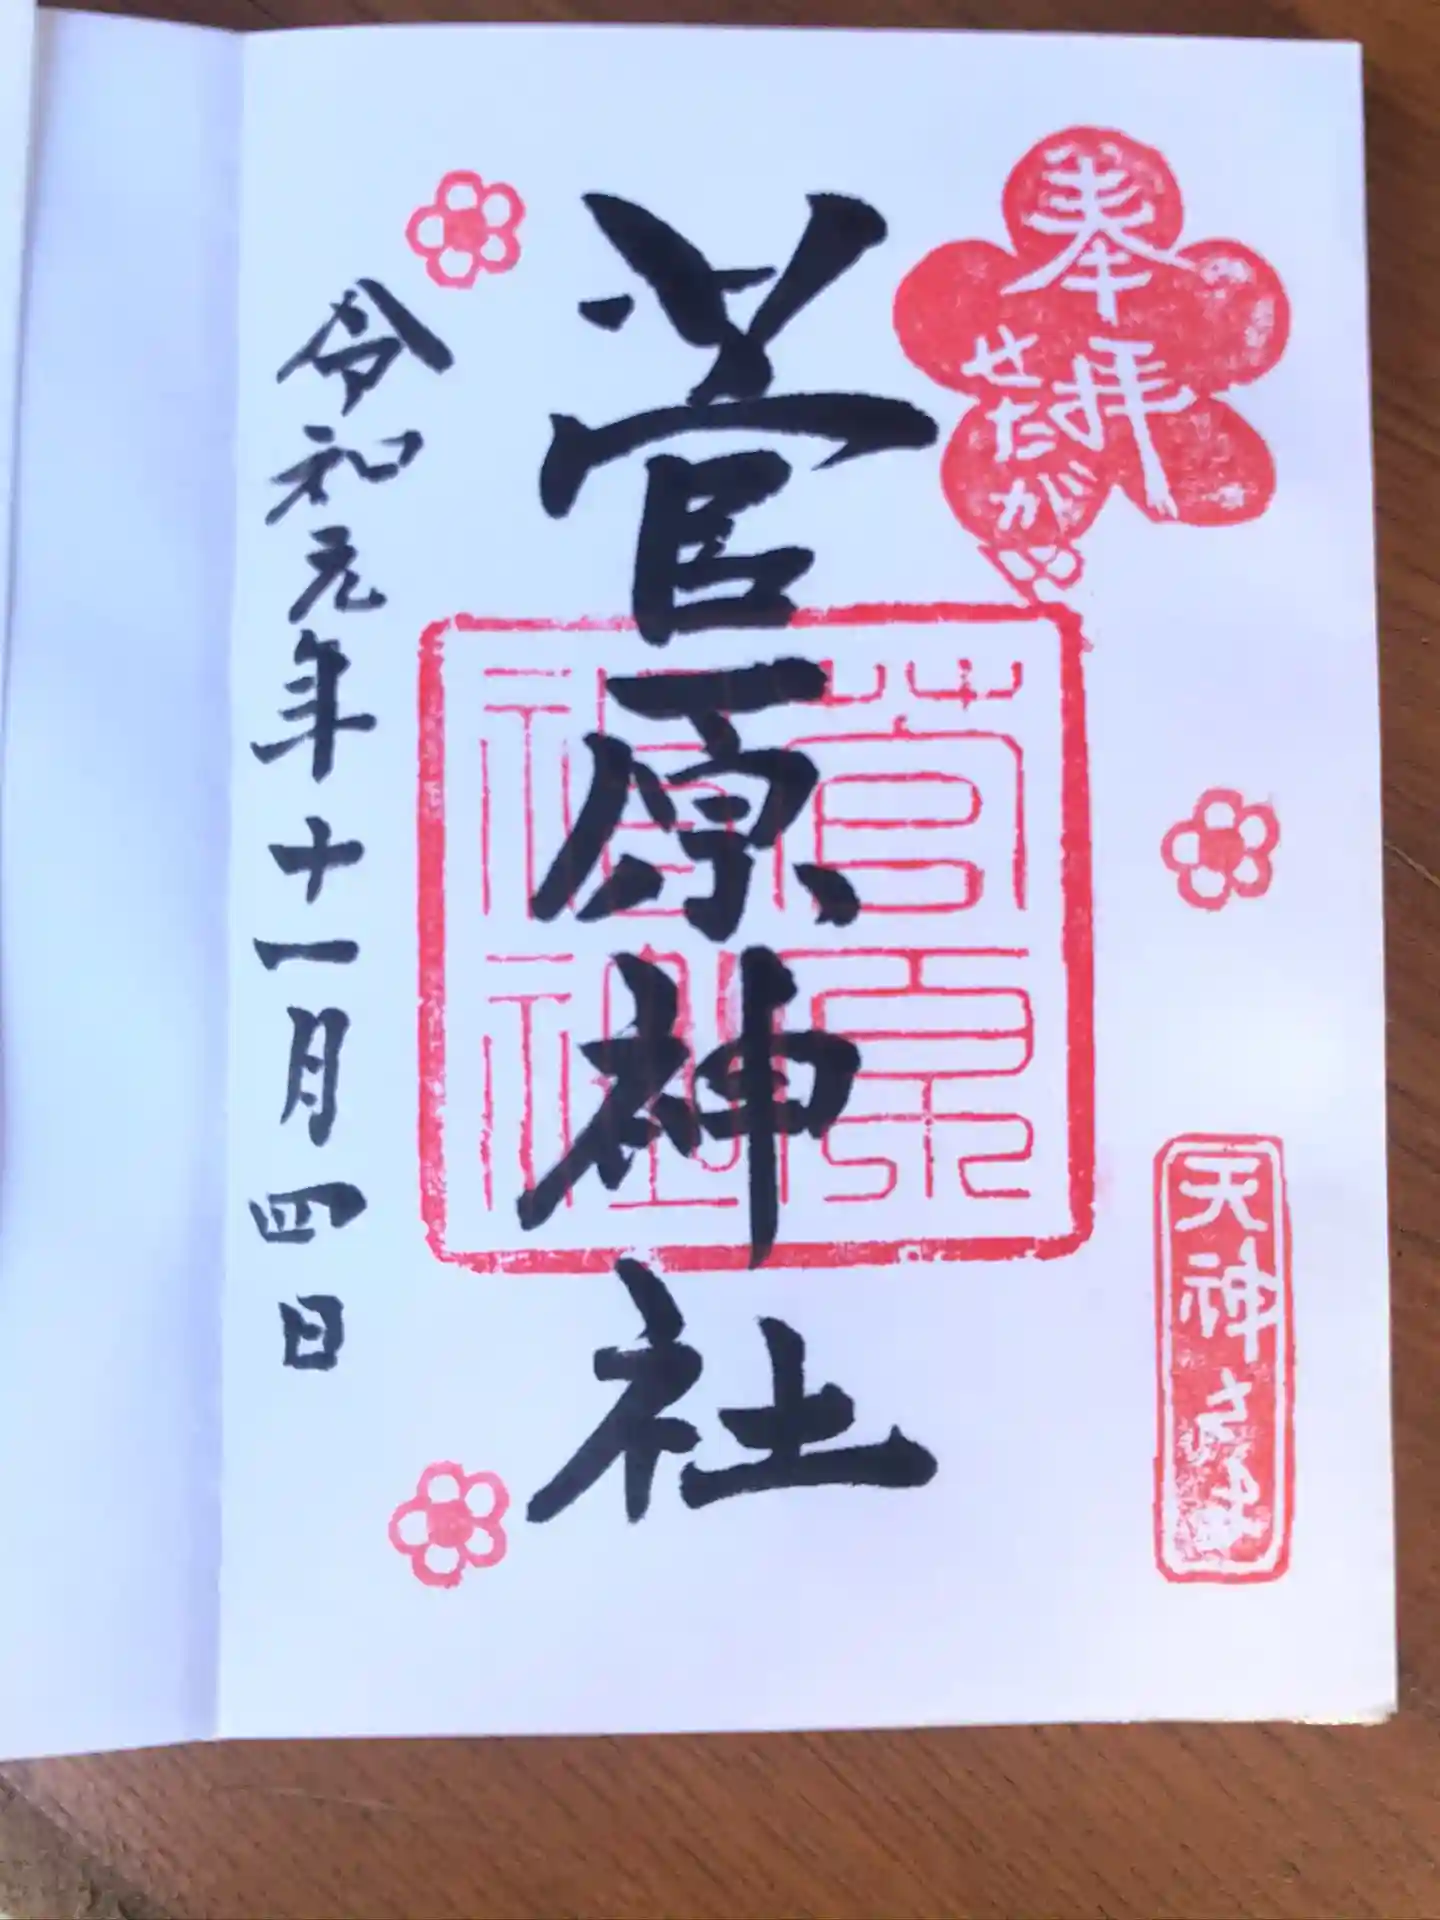 奉拝
せたがや
天神さま
菅原神社
菅原神社
令和元年十一月四日